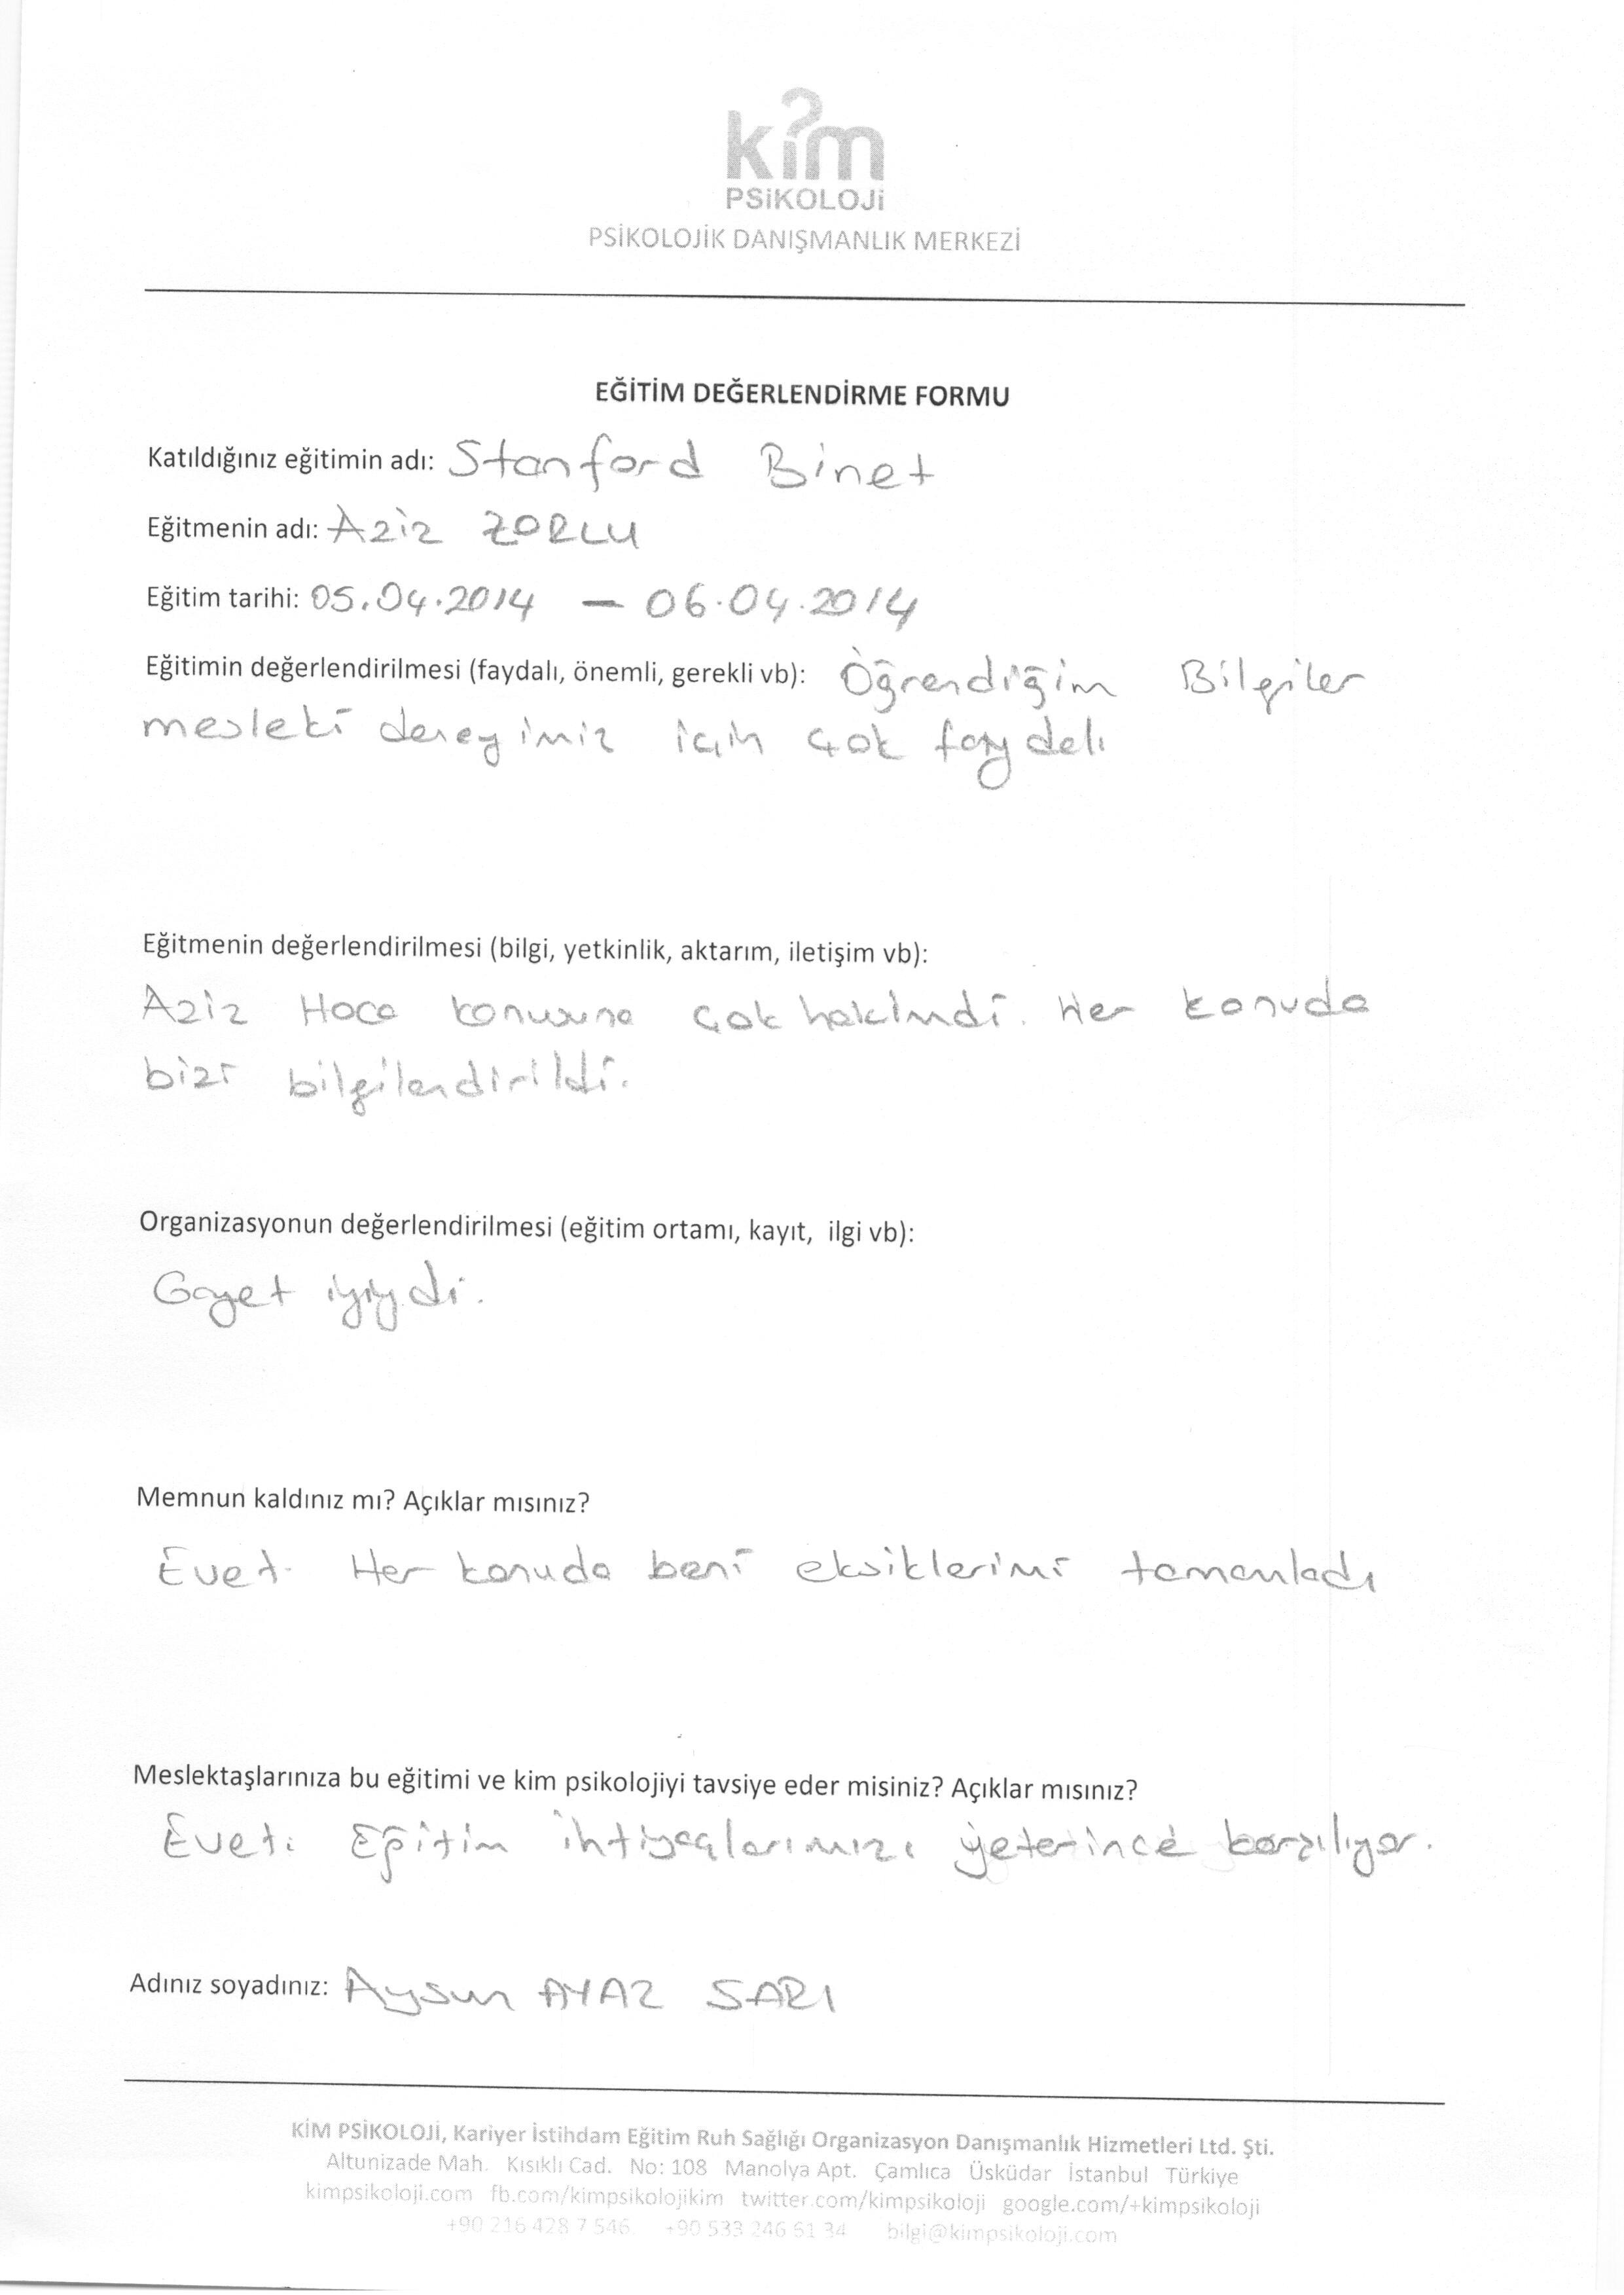 kim
PSİKOLOJİ
PSİKOLOJİK DANIŞMANLIK MERKEZİ
EĞİTİM DEĞERLENDİRME FORMU
Katıldığınız eğitimin adı: Stanford Binet
Eğitmenin adı: Aziz ZORLU
Eğitim tarihi: 05.04.2014 – 06.04.2014
Eğitimin değerlendirilmesi (faydalı, önemli, gerekli vb): Öğrendiğim Bilgiler
mesleki deneyimiz için çok faydalı
Eğitmenin değerlendirilmesi (bilgi, yetkinlik, aktarım, iletişim vb):
Aziz Hoca konusuna çok hakimdi. Her konuda
bizi bilgilendirildi.
Organizasyonun değerlendirilmesi (eğitim ortamı, kayıt, ilgi vb):
Gayet iyiydi.
Memnun kaldınız mı? Açıklar mısınız?
Evet. Her konuda beni eksiklerimi tamamladı
Meslektaşlarınıza bu eğitimi ve kim psikolojiyi tavsiye eder misiniz? Açıklar mısınız?
Evet. Eğitim ihtiyaçlarımızı yeterince karşılıyor.
Adınız soyadınız: Aysun AYAZ SARI
KİM PSİKOLOJİ, Kariyer İstihdam Eğitim Ruh Sağlığı Organizasyon Danışmanlık Hizmetleri Ltd. Şti.
Altunizade Mah. Kısıklı Cad. No: 108 Manolya Apt. Çamlıca Üsküdar İstanbul Türkiye
kimpsikoloji.com fb.com/kimpsikolojikim twitter.com/kimpsikoloji google.com/+kimpsikoloji
+90 216 428 7 546 +90 533 246 51 34 bilgi@kimpsikoloji.com